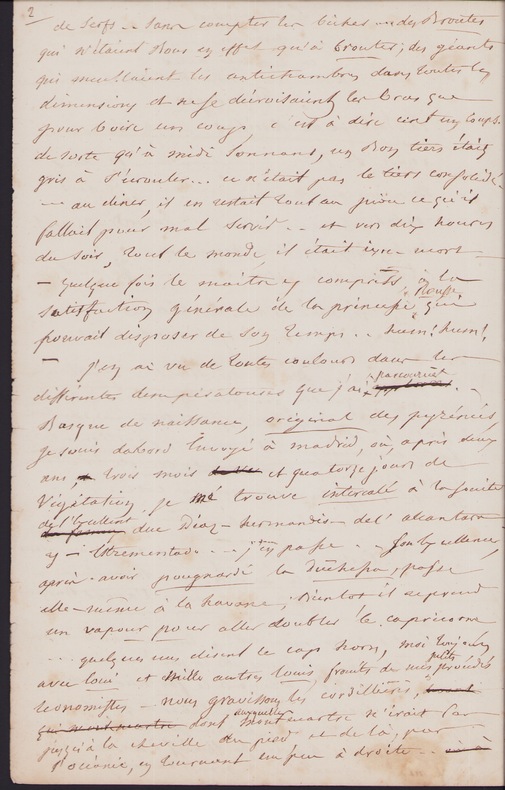 2
de Serfs.. Sans compter les biches
qui n'étaient Bons en effet qu'à brouter; des géants
qui meublaient les antichambres dans toutes les
dimensions et ne se décroisaient les bras que
pour boire un coup, c'est à dire cent un coups.
de sorte qu'à midi Sonnant, un Bon tiers était
gris à s'écrouler... ce n'était pas le tiers consolidé -
- au dîner, il en restait tout au juste ce qu'il
fallait pour mal Servir.. et vers dix heures
du Soir, tout le monde, il était ivre-mort -
- quelque fois le maître y compris, à la
satisfaction générale de la principe qui
pouvait disposer de Son temps.. hum! hum!
- J'en ai vu de toutes couleurs dans les
parcourues
différentes températures que j'ai
Basque de naissance, original des pyrénées,
je suis dabord Envoyé à madrid, où, après deux
ans, trois mois et quatorze jours de
Végétation, je me trouve intercalé à la suite
de l'Excellent
duc Diaz - hermandis - del' alcantara
y - Estremendad... j'en passe.. Son Excellence,
après avoir poignardé la Duchesse, passe
elle-même à la havane; Bientôt il reprend
un vapeur pour aller doubler le capricorne
... quelques uns disent le cap horn, moi toujours
petits
avec loui et mille autres louis, fruits de mes procédés
Economistes - nous gravissons les cordillières,
auxquelles
dont montmartre n'irait pas
jusqu'à la cheville du pied et de là, par
l'océanie, en tournant un peu à droite..